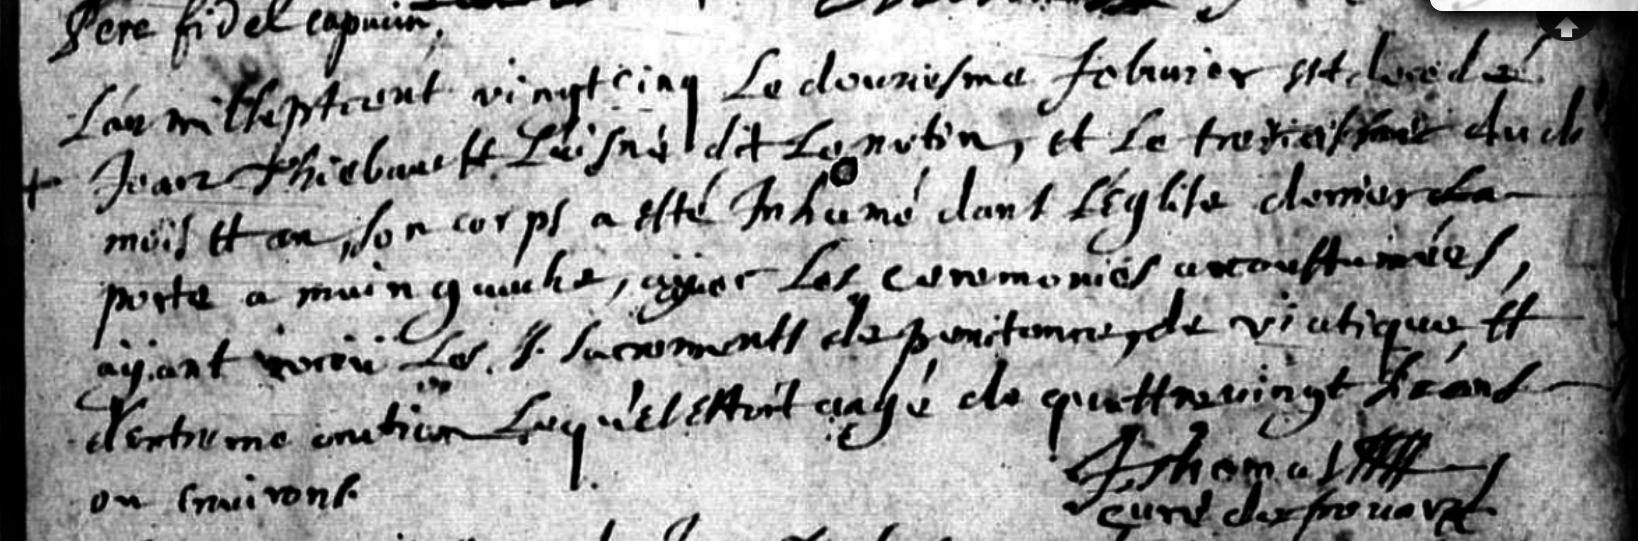 Pere fidel capucin,
L'an mil sept cent vingt cinq Le douziesme febvrier est decedé
+ Jean Thiebault L'aisné dit Le et Le treiziesme dud
mois et an, son corps a esté Inhumé dans L'Eglise derrier La
porte a main gauche, avec Les ceremonies accoustumées,
ayant receu Les S. sacrements de penitence, de viatique, et
d'extreme onction Lequel estoit aagé de quattre vingt ans
ou Environs.
F Thomas
curé de frouard